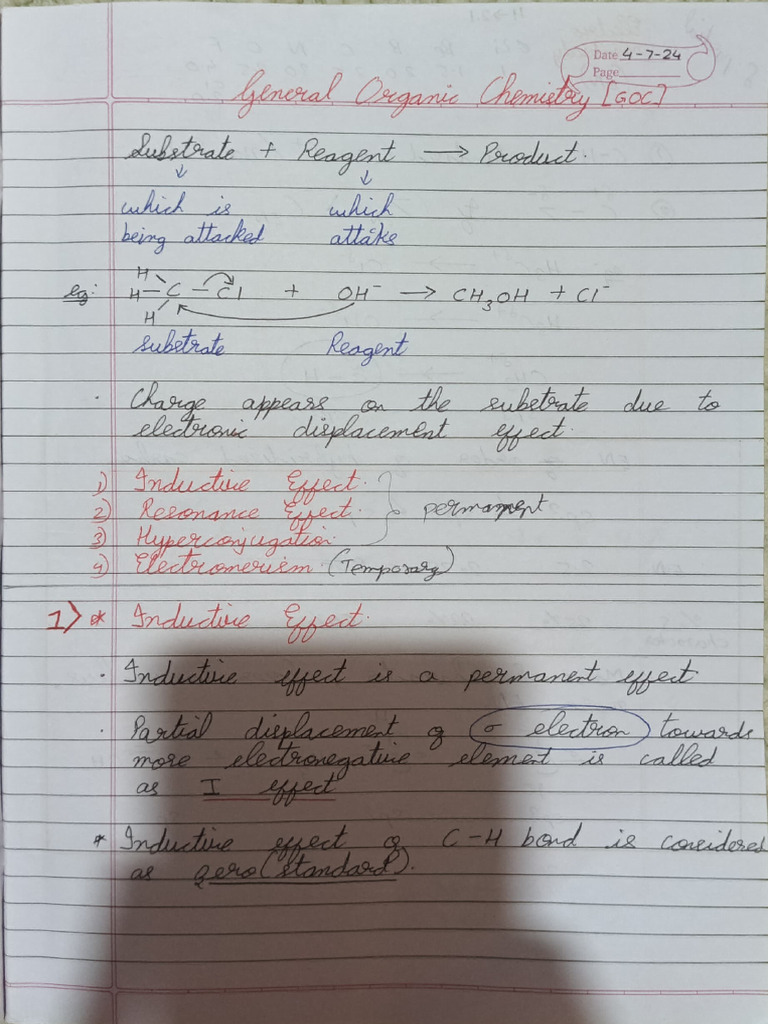 Date 4-7-24
Page
General Organic Chemistry [GOC]
Substrate + Reagent → Product.
↓ ↓
which is which
being attacked attaks
eg:
H
H-C-Cl + OH⁻ → CH₃OH + Cl⁻
H
substrate Reagent
· Charge appears on the substrate due to
electronic displacement effect.
1) Inductive Effect.
2) Resonance Effect. } permanent
3) Hyperconjugation.
4) Electromerism (Temporary)
1) * Inductive Effect.
· Inductive effect is a permanent effect
· Partial displacement of σ electron towards
more electronegative element is called
as I effect
* Inductive effect of C-H bond is considered
as zero (standard).